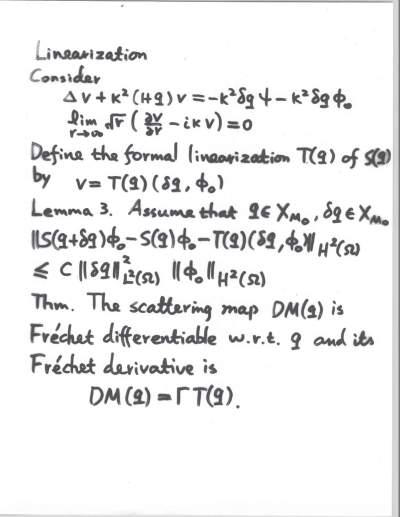 Linearization
Consider
Δv + κ²(1+q)v = -κ²δq ψ - κ²δq ϕ₀
lim r→∞ √r (∂v/∂r - iκv) = 0
Define the formal linearization T(q) of S(q)
by v = T(q)(δq, ϕ₀)
Lemma 3. Assume that q ∈ X_M₀, δq ∈ X_M₀
‖S(q+δq)ϕ₀ - S(q)ϕ₀ - T(q)(δq, ϕ₀)‖_H²(Ω)
≤ C ‖δq‖²_L²(Ω) ‖ϕ₀‖_H²(Ω)
Thm. The scattering map DM(q) is
Fréchet differentiable w.r.t. q and its
Fréchet derivative is
DM(q) = Γ T(q).